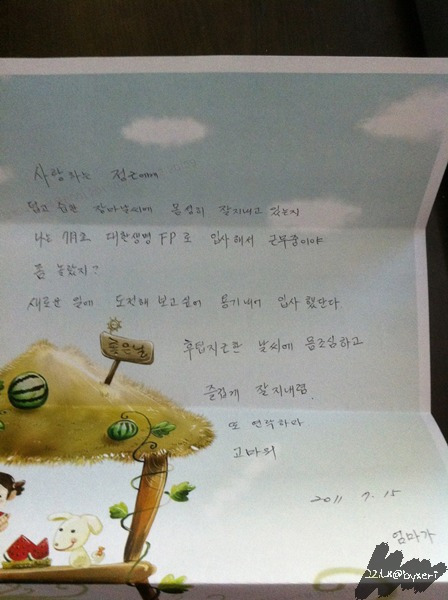 사랑하는 정근에게
덥고 습한 장마날씨에 몸성히 잘지내고 있는지
나는 7月로 대한생명 FP로 입사해서 근무중이야
좀 놀랐지?
새로운 일에 도전해 보고싶어 용기내어 입사했단다
좋은날
후텁지근한 날씨에 몸조심하고
즐겁게 잘지내렴.
또 연락하마
고마워
2011 7. 15
엄마가
@byxeri